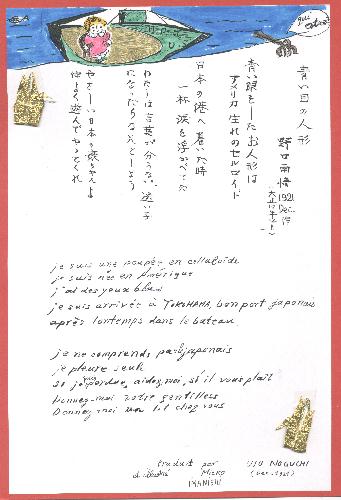 青い目の人形
野口雨情 1921
Dec. 作
青い眼をしたお人形は
アメリカ生れのセルロイド
日本の港へ着いた時
一杯涙を浮かべてた
わたしは言葉が分らない 迷い子
になったらなんとしよう
やさしい日本の嬢ちゃんよ
仲よく遊んでやってくれ
je suis une poupée en celluloïde
je suis née en Amérique
j'ai des yeux bleus
je suis arrivée à YOKOHAMA, bon port japonais
après lontemps dans le bateau
je ne comprends pas japonais
je pleure seule
si je me perdue, aidez moi, s'il vous plaît
donnez-moi votre gentilless
Donnez-moi mon lit chez vous
traduit par UJO NOGUCHI
d'illustré MICKO (ver. 1921)
IMANISHI